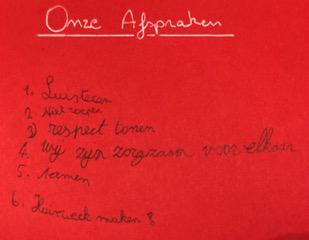 Onze Afspraken
1. Luisteren
2 Niet roepen
3) respect tonen
4. wy zyn zorgzaam voor elkaar
5. samen
6. Huiswerk maken 8